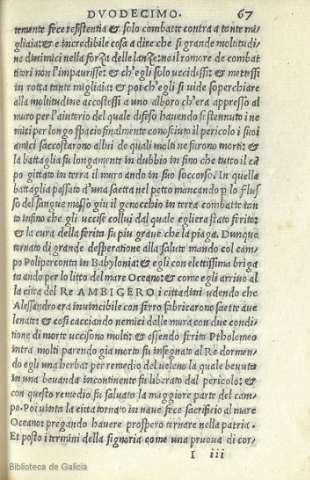 DVODECIMO. 67
tenente fece resistentia & solo combatte contra a tante mi
gliaia: & e incredibile cosa a dire che si grande moltitudi
ne dinimici nella forza delle lanze: ne il romore de combat
titori non l'impaurisse: & ch'egli solo uccidissi: & mettissi
in rotta tante migliaia: & poi ch'egli si vide soperchiare
alla moltitudine accostossi a uno alboro ch'era appresso al
muro per l'aiuterio del quale difeso havendo sistenuto i ne
mici per longo spacio finalmente conosciuto il pericolo i suoi
amici saccostarono a lui de quali molti ne furono morti: &
la battaglia fu longamente in dubbio in fino che tutto il cā
po gittato in terra il muro ando in suo soccorso. In quella
battaglia passato d'una saetta nel petto mancando p lo flus
so del sangue messo giu il genocchio in terra combatte tan
to insino che gli uccise collui dal quale egli era stato ferito:
& le cura della ferita fu piu grave che la piaga. Dunque
tornato di grande desperatione alla salute mando col cam
po Poliperconte in Babylonia: & egli con elettissima briga
ta ando per lo litto del mare Oceano: & come egli arrivo al
la citta del Re AMBIGERO i cittadini udendo che
Alessandro era invincibile con ferro fabricarono saette ave
lenate: & cosi cacciando nemici dalle mura con due condi
tione di morte uccisono molti: & essendo ferito Ptholomeo
intra molti parendo gia morto fu insegnato al Re dormen
do egli una herba: per remedio del veleno la quale bevuta
in una bevanda incontinente fu liberato dal pericolo: &
con questo remedio fu salvato la maggiore parte del cam
po. Poi vinta la citta tornato in nave fece sacrificio al mare
Oceano: pregando havere prospero tornare nella patria.
Et posto i termini della signoria come una pruova di cor,
I iii
Biblioteca de Galicia